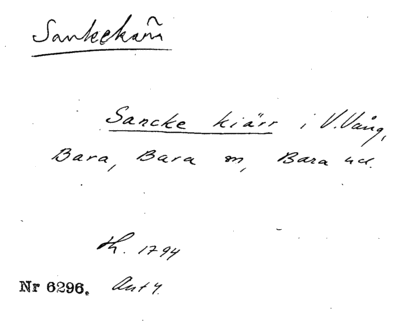 Sankekärr
Sancke kiärr i V. Vång,
Bara, Bara sn, Bara hd.
Th. 1794
Nr 6296. Ant 4.